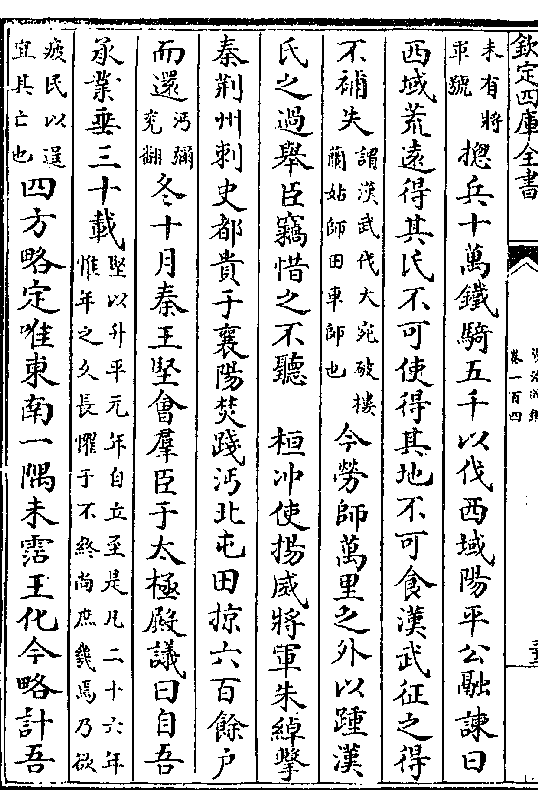 欽定四庫全書
卷一百四
未有將軍號總兵十萬鐵騎五千以伐西域陽平公融諫曰
西域荒遠得其民不可使得其地不可食漢武征之得
不補失謂漢武伐大宛破樓蘭姑師田車師也今勞師萬里之外以踵漢
氏之過舉臣竊惜之不聽 桓冲使揚威將軍朱綽擊
秦荆州刺史都貴于襄陽焚踐沔北屯田掠六百餘户
而還沔彌兖翻冬十月秦王堅會羣臣于太極殿議曰自吾
承業垂三十載堅以升平元年自立至是凡二十六年惟年之久長懼于不終尚庶幾焉乃欲
疲民以逞宜其亡也四方略定唯東南一隅未霑王化今略計吾